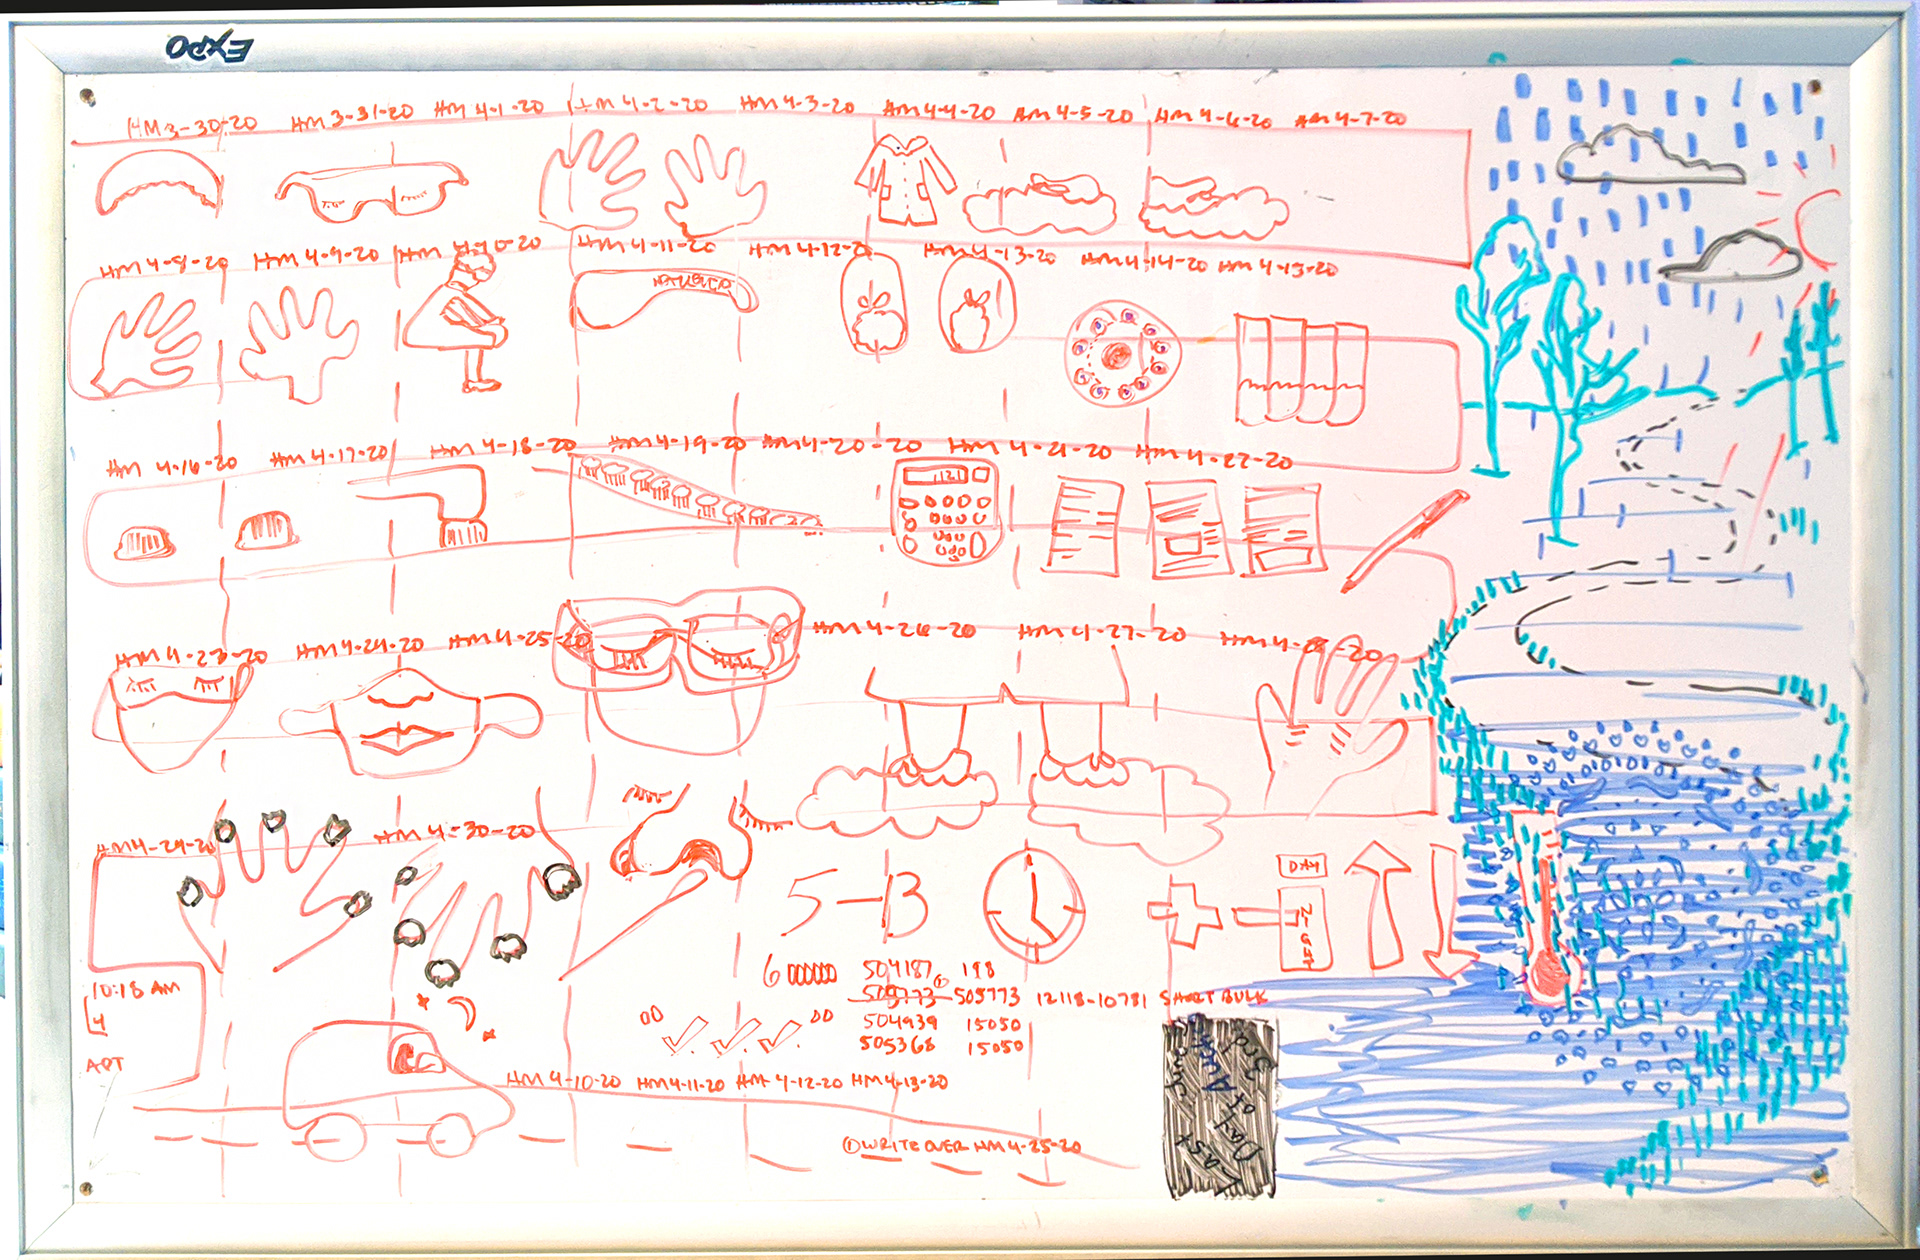 EXPO
HM 3-30-20 HM 3-31-20 HM 4-1-20 HM 4-2-20 HM 4-3-20 HM 4-4-20 HM 4-5-20 HM 4-6-20 HM 4-7-20
HM 4-8-20 HM 4-9-20 HM 4-10-20 HM 4-11-20 HM 4-12-20 HM 4-13-20 HM 4-14-20 HM 4-15-20
HM 4-16-20 HM 4-17-20 HM 4-18-20 HM 4-19-20 HM 4-20-20 HM 4-21-20 HM 4-22-20
1121
HM 4-23-20 HM 4-24-20 HM 4-25-20 HM 4-26-20 HM 4-27-20 HM 4-28-20
HM 4-29-20 HM 4-30-20
5-13
DAY
NIGHT
10:18 AM
4
APT
6 000000 504187 198
505773 ① 505773 12118-10781 SHORT BULK
00 00 504939 15050
505368 15050
HM 4-10-20 HM 4-11-20 HM 4-12-20 HM 4-13-20
① WRITE OVER HM 4-25-20
Last
Day of